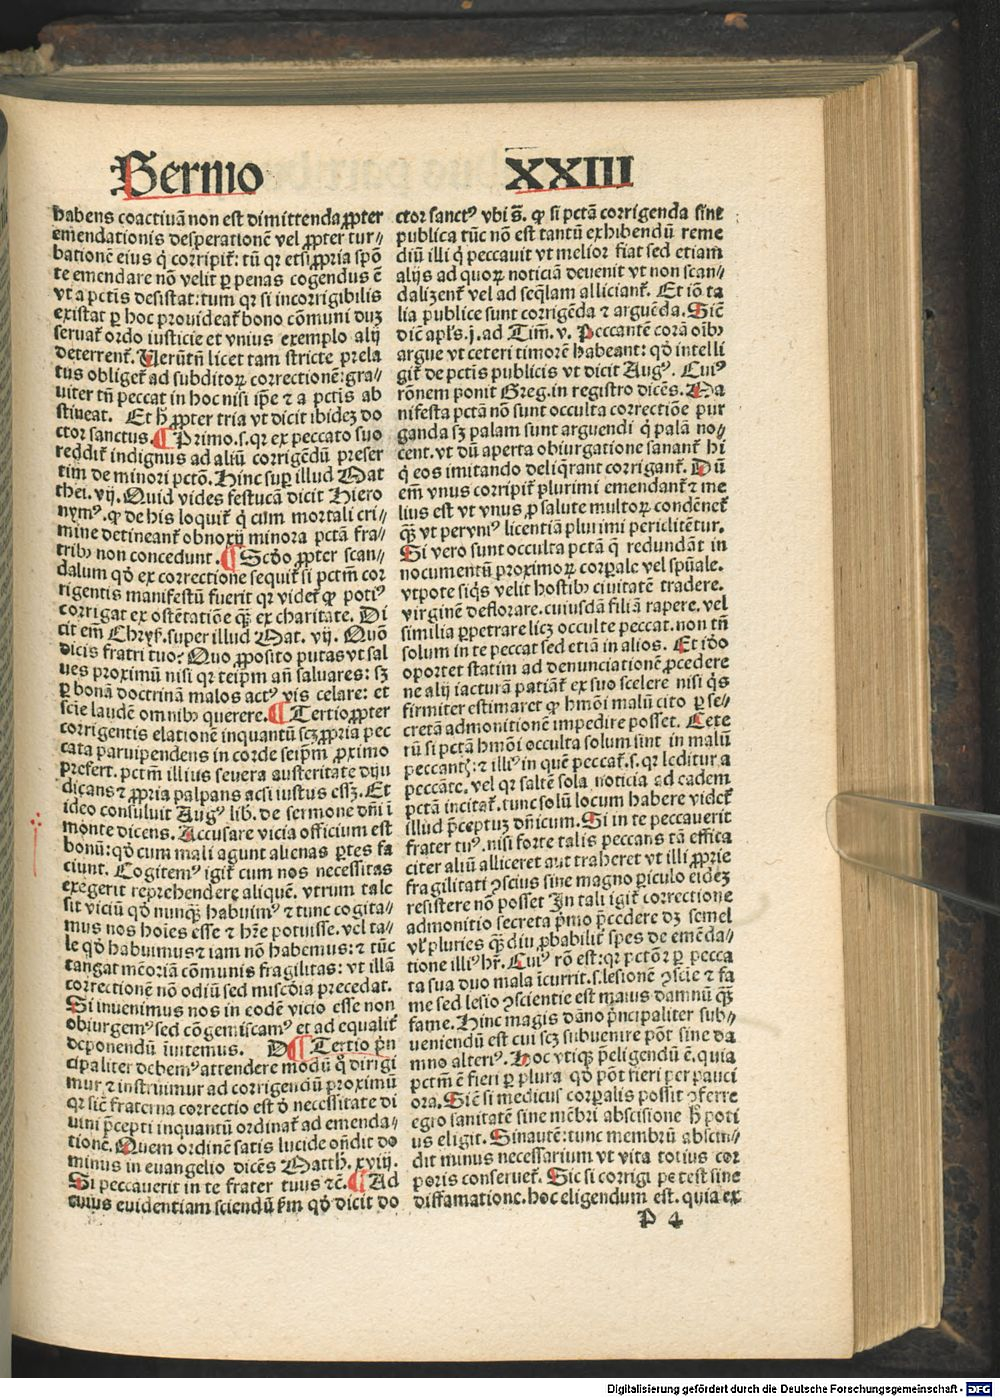 Sermo XXIII
habens coactiuã non est dimittenda ꝓpter
emendationis desperationẽ vel ꝓpter tur⸗
bationẽ eius q̇ corripit᷑: tũ qꝛ etsi ꝓpria spõ
te emendare nõ velit ꝑ penas cogendus ẽ
vt a pctĩs desistat: tum qꝛ si incorrigibilis
existat ꝑ hoc prouideat᷑ bono cõmuni duʒ
seruat᷑ ordo iusticie et vnius exemplo alij
deterrent᷑. Uerũtñ licet tam stricte prela
tus obliget᷑ ad subditoꝝ correctionẽ: gra⸗
uiter tñ peccat in hoc nisi ip̃e ⁊ a pctis ab
stineat. Et h̃ ꝓpter tria vt dicit ibideʒ do
ctor sanctus. ¶ Primo .s. qꝛ ex peccato suo
reddit᷑ indignus ad aliũ corrigẽdũ preser
tim de minori pctõ. Hinc suꝑ illud Mat
thei. vij. Quid vides festucã dicit Hiero
nymꝰ. ꝙ de his loquit᷑ q̇ cum mortali cri⸗
mine detineant᷑ obnoxij minora pctã fra⸗
tribꝫ non concedunt. ¶ Scd̃o ꝓpter scan⸗
dalum qd̓ ex correctione sequit᷑ si pctm̃ cor
rigentis manifestũ fuerit qꝛ videt᷑ ꝙ potiꝰ
corrigat ex ostẽtatiõe qꝫ̃ ex charitate. Di
cit em̃ Chrys. super illud Mat. vij. Quõ
dicis fratri tuo? Quo ꝓposito putas vt sal
ues proximũ nisi qꝛ teip̃m añ saluares: sʒ
ꝑ bonã doctrinã malos actꝰ vis celare: et
scĩe laudẽ omnibꝫ querere. ¶ Tertio ꝓpter
corrigentis elationẽ inquantũ scʒ ꝓpria pec
cata paruipendens in corde seip̃m ꝓximo
prefert. pctm̃ illius seuera austeritate diju
dicans ⁊ ꝓpria palpans acsi iustus essʒ. Et
ideo consuluit Augꝰ lib. de sermone dñi ĩ
monte dicens. Accusare vicia officium est
bonũ: qd̓ cum mali agunt alienas ꝑtes fa
ciunt. Cogitemꝰ igit᷑ cum nos necessitas
exegerit reprehendere aliquẽ. vtrum tale
sit viciũ qd̓ nunqꝫ̃ habuimꝰ ⁊ tunc cogita⸗
mus nos hoĩes esse ⁊ hr̃e potuisse. vel ta⸗
le qd̓ habuimus ⁊ iam nõ habemus: ⁊ tũc
tangat mẽoriã cõmunis fragilitas: vt illã
correctionẽ nõ odiũ sed misc̃dia precedat.
Si inuenimus nos in eodẽ vicio esse non
obiurgemꝰ sed cõgemiscamꝰ et ad equalit᷑
deponendũ ĩuitemus. D ¶ Tertio p̃n
cipaliter debemꝰ attendere modũ q̊ dirigi
mur ⁊ instruimur ad corrigendũ proximũ
qꝛ sicẽ fraterna correctio est d̓ necessitate di
uini p̃cepti inquantũ ordinat᷑ ad emenda⸗
tionẽ. Quem ordinẽ satis lucide oñdit do
minus in euangelio dicẽs Matth. xviij.
Si peccauerit in te frater tuus ⁊c̃. ¶ Ad
cuius euidentiam sciendũ ẽm qd̓ dicit do
ctor sanctꝰ vbi s̃. ꝙ si pctã corrigenda sint
publica tũc nõ est tantũ exhibendũ reme
diũ illi q̇ peccauit vt melior fiat sed etiam
alijs ad quoꝝ noticiã deuenit vt non scan⸗
dalizent᷑ vel ad seq̃lam alliciant᷑. Et iõ ta
lia publice sunt corrigẽda ⁊ arguẽda. Sicẽ
dic̃ apl̃s .j. ad Tim̃. v. Peccantẽ corã oĩbꝫ
argue vt ceteri timorẽ habeant: qd̓ intelli
git᷑ de pctĩs publicis vt dicit Augꝰ. Cuiꝰ
rõnem ponit Greg. in registro dicẽs. Ma
nifesta pctã nõ sunt occulta correctiõe pur
ganda sʒ palam sunt arguendi q̇ palã no⸗
cent. vt dũ aperta obiurgatione sanant᷑ hi
q̇ eos imitando deliq̃rant corrigant᷑. Dũ
em̃ vnus corripit᷑ plurimi emendant᷑ ⁊ me
lius est vt vnus ꝓ salute multoꝝ condẽnet᷑
qꝫ̃ vt per vniꝰ licentiã plurimi periclitẽtur.
Si vero sunt occulta pctã q̃ redundãt in
nocumentũ proximoꝝ corꝑale vel spũale.
vtpote siq̇s velit hostibꝫ ciuitatẽ tradere.
virginẽ deflorare. cuiusdã filiã rapere. vel
similia ꝑpetrare licʒ occulte peccat. non tñ
solum in te peccat sed etiã in alios. Et iõo
oportet statim ad denunciationẽ ꝓcedere
ne alij iacturã patiãt᷑ ex suo scelere nisi q̇s
firmiter estimaret ꝙ hmõi malũ cito ꝑ se⸗
cretã admonitionẽ impedire posset. Cete
rũ si pctã hmõi occulta solum sint in malũ
peccantꝭ: ⁊ illiꝰ in quẽ peccat᷑ .s. qꝛ leditur a
peccãte. vel qꝛ saltẽ sola noticia ad eadem
pctã incitat᷑. tunc solũ locum habere videt᷑
illud p̃ceptuʒ dñicum. Si in te peccauerit
frater tuꝰ. nisi forte talis peccans tã effica
citer aliũ alliceret aut traheret vt illi ꝓprie
fragilitati ꝯscius sine magno ꝑiculo eideʒ
resistere nõ posset In tali igit᷑ correctione
admonitio secreta p̃mo p̃cedere dʒ semel
vl̓ pluries qꝫ̃ diu ꝓbabilit᷑ spes de emẽda⸗
tione illiꝰ hr̃. Cuiꝰ rõ est: qꝛ pctõꝝ ꝑ pecca
ta sua duo mala ĩcurrit. s. lesionẽ ꝯscĩe ⁊ fa
me sed lesio ꝯscientie est maius damnũ qꝫ̃
fame. Hinc magis dãno p̃ncipaliter sub⸗
ueniendũ est cui scʒ subuenire põt sine da
mno alteriꝰ. Hoc vtiqꝫ p̃eligendũ ẽ. quia
pctm̃ ẽ fieri ꝑ plura qd̓ põt fieri per pauci
ora. Sicẽ si medicus corꝑalis possit ꝯferre
egro sanitatẽ sine mẽbri abscisione h̃ poti
us eligit. Sin autẽ: tunc membrũ abscin⸗
dit minus necessarium vt vita totius cor
poris conseruet᷑. Sic si corrigi potest sine
diffamatione. hoc eligendum est. quia ex
P 4
Digitalisierung gefördert durch die Deutsche Forschungsgemeinschaft - DFG